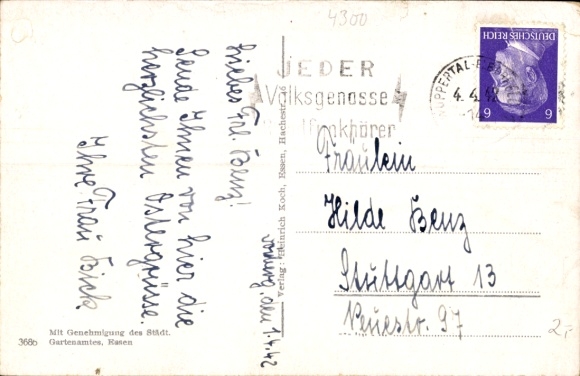 4300
JEDER
Volksgenosse
Funkhörer
WUPPERTAL-E
4.4.42
DEUTSCHES REICH
6 6
Liebes Frl. Benz!
Sende Ihnen von hier die
herzlichsten Ostergrüsse.
Ihre Frau Bick
den 1.4.42
Verlag: Heinrich Koch, Essen, Hachestraße
Fräulein
Hilde Benz
Stuttgart 13
Neuestr. 97
2,-
Mit Genehmigung des Städt.
Gartenamtes, Essen
368b